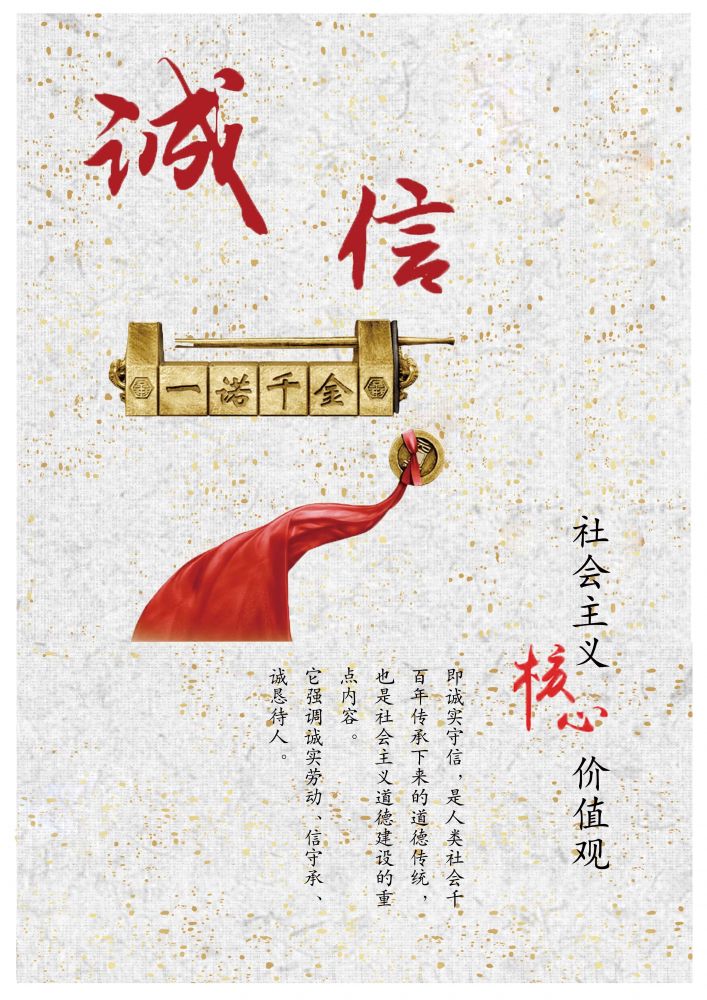 诚信
一诺千金
社会主义核心价值观
即诚实守信，是人类社会千
百年传承下来的道德传统，
也是社会主义道德建设的重
点内容。
它强调诚实劳动、信守承、
诚恳待人。